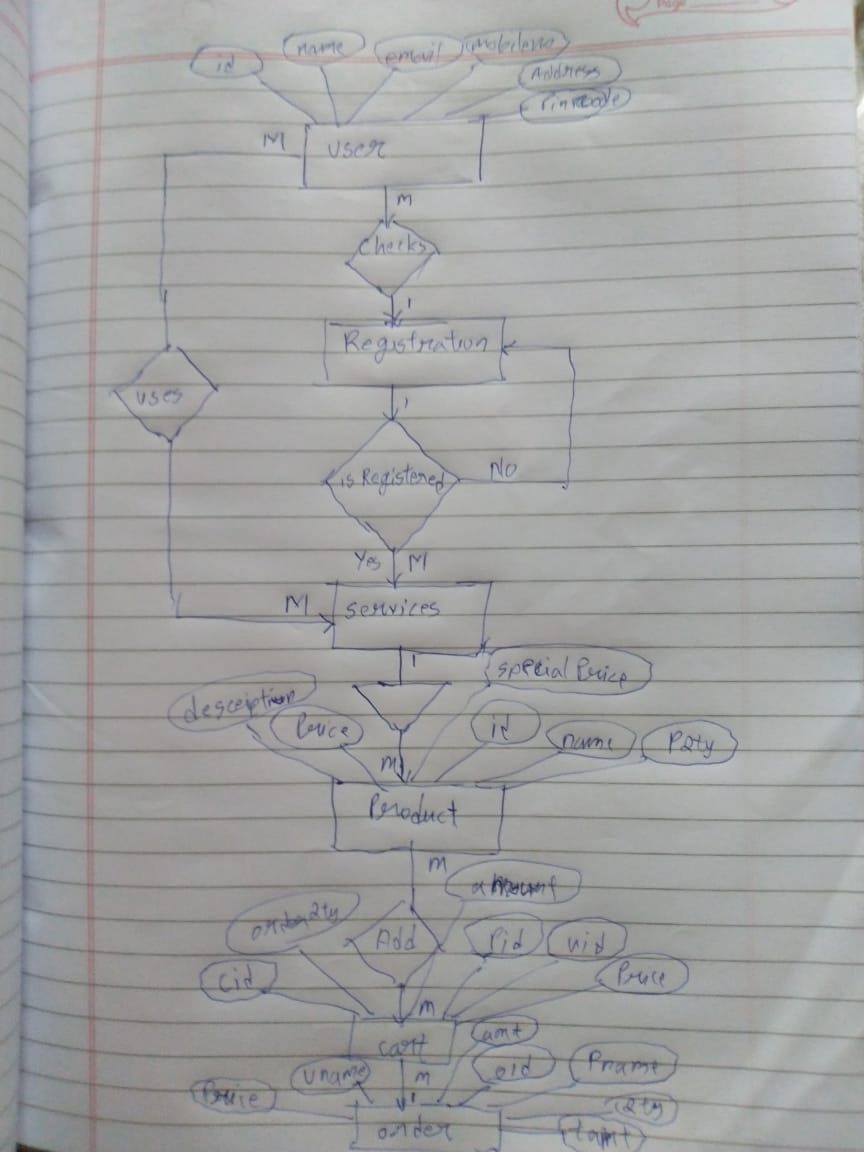 Page
id name email mobileno
Address
Pincode
M user
M
Checks
1
Registration
1
uses
is Registered No
Yes M
M services
1
special Price
description
Price id name P2ty
M
Product
M
Add Pid uid
cid Price
M
cart amt
uname M oid Pname
Price 1 q2ty
order tamt